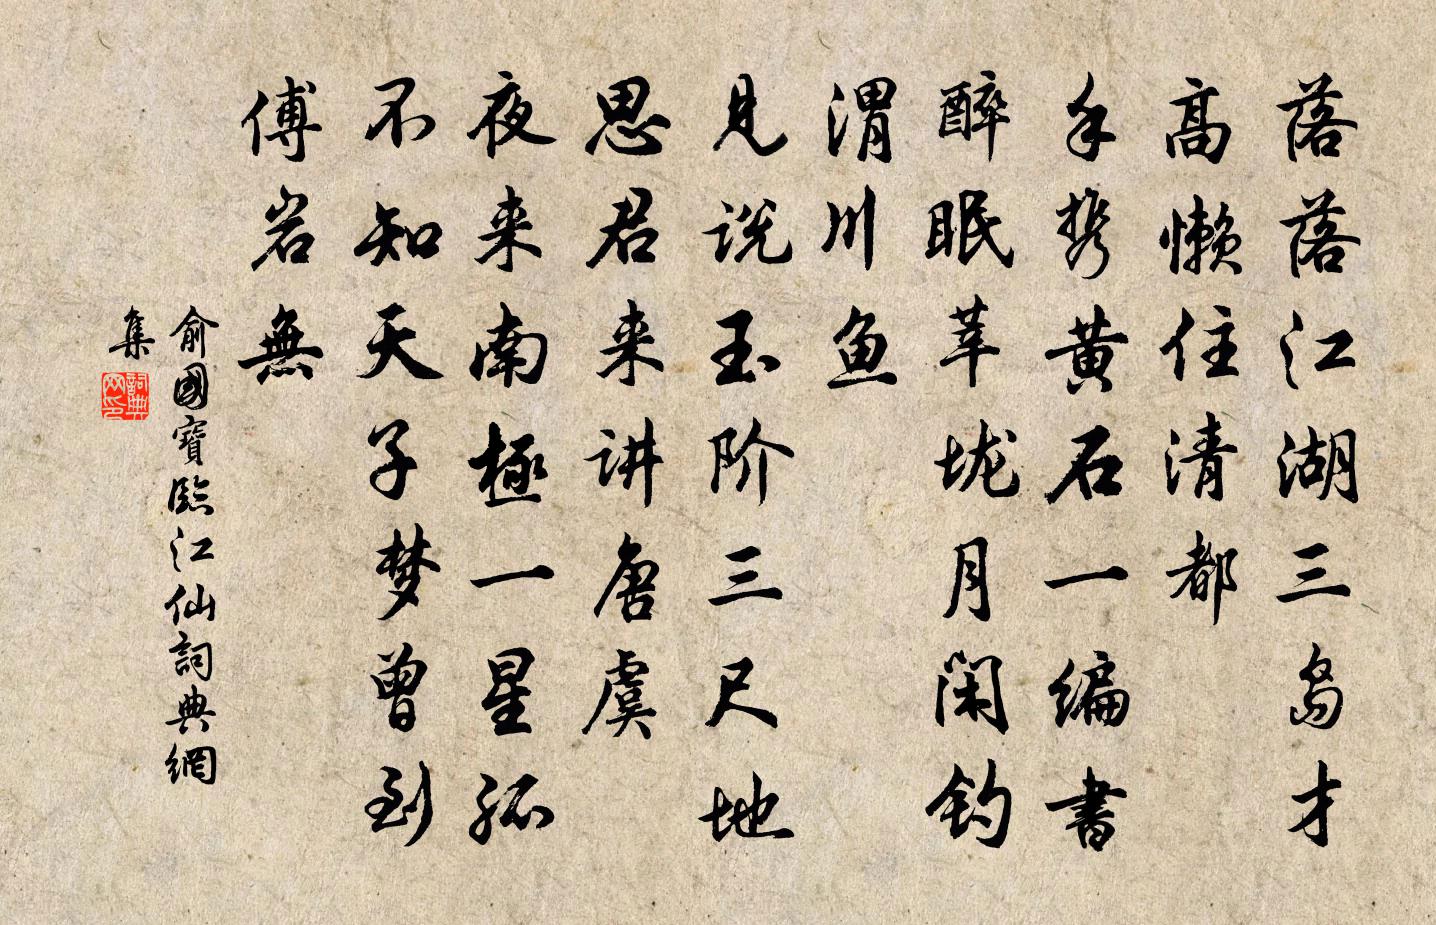 落落江湖三岛才
高懒住清都
手携黄石一编书
醉眠莘垅月闲钓
渭川鱼
见说玉阶三尺地
思君来讲唐虞
夜来南極一星孤
不知天子梦曾到
傅岩無
俞國寶臨江仙詞典網
集
詞典
网印